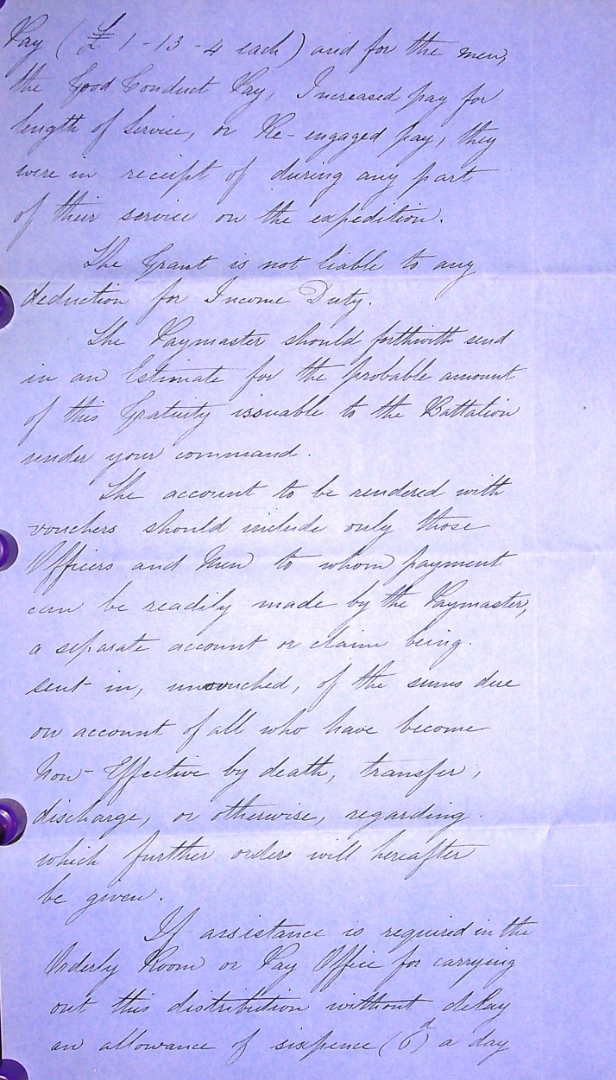 Pay (£ 1-13-4 each) and for the men,
the Good Conduct Pay, Increased pay for
length of Service, or Re-engaged pay, they
were in receipt of during any part
of their service on the expedition.
The Grant is not liable to any
deduction for Income Duty.
The Paymaster should forthwith send
in an Estimate for the probable amount
of this Gratuity issuable to the Battalion
under your command.
The account to be rendered with
vouchers should include only those
Officers and Men to whom payment
can be readily made by the Paymaster,
a separate account or claim being
sent in, unvouched, of the sums due
on account of all who have become
Non-Effective by death, transfer,
discharge, or otherwise, regarding
which further orders will hereafter
be given.
If assistance is required in the
Orderly Room or Pay Office for carrying
out this distribution without delay
an allowance of sixpence (6d) a day